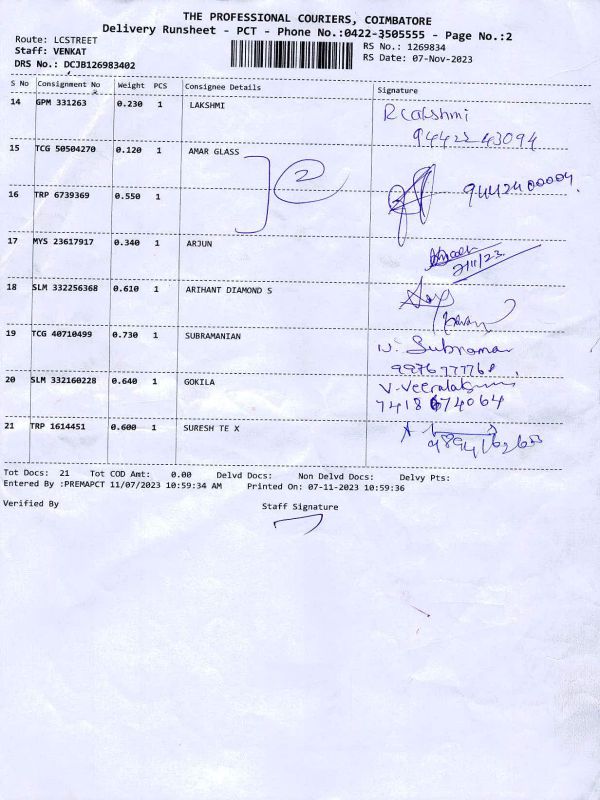 THE PROFESSIONAL COURIERS, COIMBATORE
Delivery Runsheet - PCT - Phone No.:0422-3505555 - Page No.:2
Route: LCSTREET
RS No.: 1269834
Staff: VENKAT
RS Date: 07-Nov-2023
DRS No.: DCJB126983402
S No Consignment No Weight PCS Consignee Details Signature
14 GPM 331263 0.230 1 LAKSHMI R Lakshmi
94422 43094
15 TCG 50504270 0.120 1 AMAR GLASS
2
16 TRP 6739369 0.550 1 9442400004
17 MYS 23617917 0.340 1 ARJUN
7/11/23
18 SLM 332256368 0.610 1 ARIHANT DIAMOND S
19 TCG 40710499 0.730 1 SUBRAMANIAN
20 SLM 332160228 0.640 1 GOKILA
21 TRP 1614451 0.600 1 SURESH TE X
Tot Docs: 21 Tot COD Amt: 0.00 Delvd Docs: Non Delvd Docs: Delvy Pts:
Entered By :PREMAPCT 11/07/2023 10:59:34 AM Printed On: 07-11-2023 10:59:36
Verified By
Staff Signature